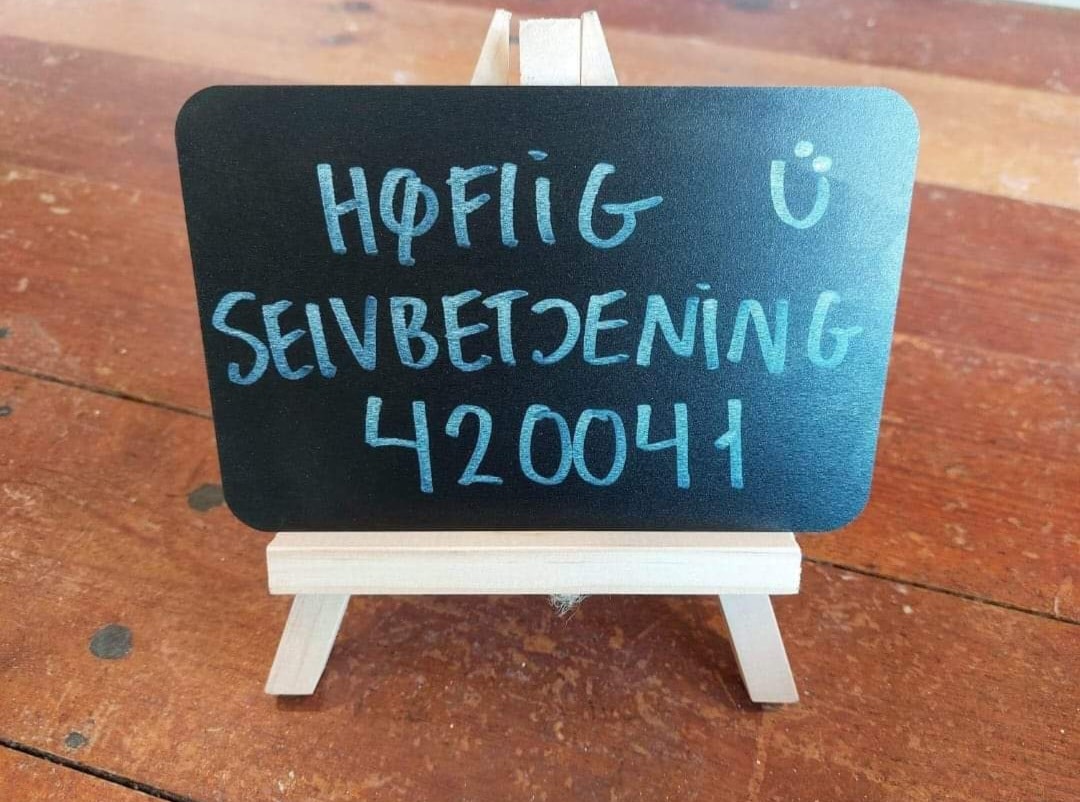 HØFLIG Ü
SELVBETJENING
420041